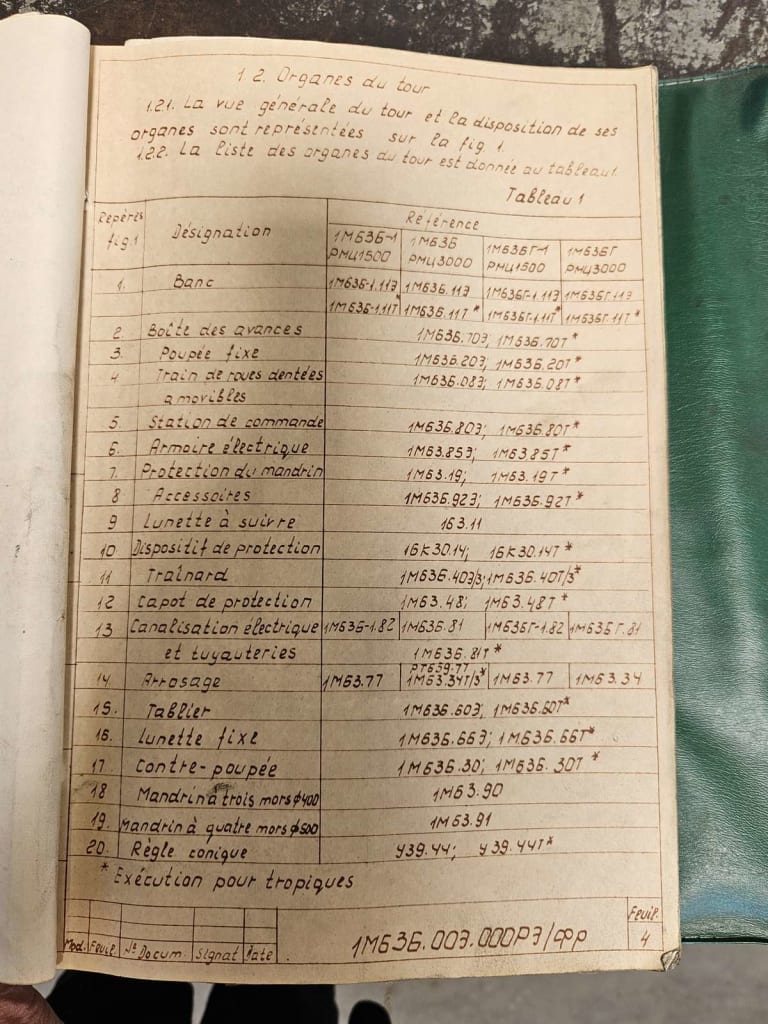 1.2. Organes du tour
1.2.1. La vue générale du tour et la disposition de ses
organes sont représentées sur la fig. 1.
1.2.2. La liste des organes du tour est donnée au tableau 1.
Tableau 1
Repères fig.1 Désignation Référence
1М63Б-1 РМЦ1500 1М63Б РМЦ3000 1М63БГ-1 РМЦ1500 1М63БГ РМЦ3000
1. Banc 1М63Б-1.11Э 1М63Б.11Э 1М63БГ-1.11Э 1М63БГ.11Э
1М63Б-1.11Т* 1М63Б.11Т* 1М63БГ-1.11Т* 1М63БГ.11Т*
2. Boîte des avances 1М63Б.70Э; 1М63Б.70Т*
3. Poupée fixe 1М63Б.20Э; 1М63Б.20Т*
4 Train de roues dentées 1М63Б.08Э; 1М63Б.08Т*
amovibles
5. Station de commande 1М63Б.80Э; 1М63Б.80Т*
6. Armoire électrique 1М63.85Э; 1М63.85Т*
7. Protection du mandrin 1М63.19; 1М63.19Т*
8 Accessoires 1М63Б.92Э; 1М63Б.92Т*
9 Lunette à suivre 163.11
10 Dispositif de protection 16К30.14; 16К30.14Т*
11 Traînard 1М63Б.40Э/3; 1М63Б.40Т/3*
12 Capot de protection 1М63.48; 1М63.48Т*
13 Canalisation électrique 1М63Б-1.82 1М63Б.81 1М63БГ-1.82 1М63БГ.81
et tuyauteries 1М63Б.81Т*
14. Arrosage 1М63.77 РТ659.77 1М63.34Т/3* 1М63.77 1М63.34
15. Tablier 1М63Б.60Э; 1М63Б.60Т*
16. Lunette fixe 1М63Б.66Э; 1М63Б.66Т*
17. Contre-poupée 1М63Б.30; 1М63Б.30Т*
18 Mandrin à trois mors ф400 1М63.90
19. Mandrin à quatre mors ф500 1М63.91
20. Règle conique У39.44; У39.44Т*
* Exécution pour tropiques
Mod. Feuil. № Docum. Signat Date 1М63Б.00Э.000РЭ/фр Feuil. 4